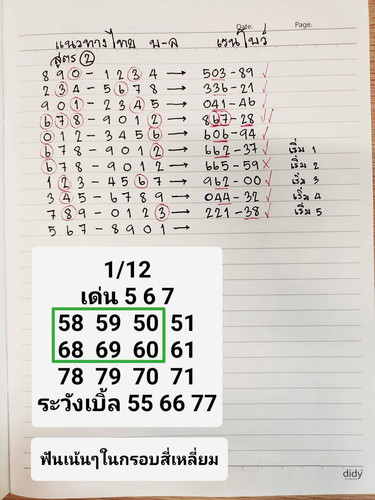 Date. Page.
แนวทางไทย บ-ล เรนโบว์
สูตร 2
890-1234 → 503-89
234-5678 → 336-21
901-2345 → 041-46
678-9012 → 867-28
012-3456 → 606-94
678-9012 → 662-37 เริ่ม 1
678-9012 → 665-59 เริ่ม 2
123-4567 → 962-00 เริ่ม 3
345-6789 → 044-32 เริ่ม 4
789-0123 → 221-38 เริ่ม 5
567-8901 →
1/12
เด่น 5 6 7
58 59 50 51
68 69 60 61
78 79 70 71
ระวังเบิ้ล 55 66 77
ฟันเน้นๆในกรอบสี่เหลี่ยม
didy